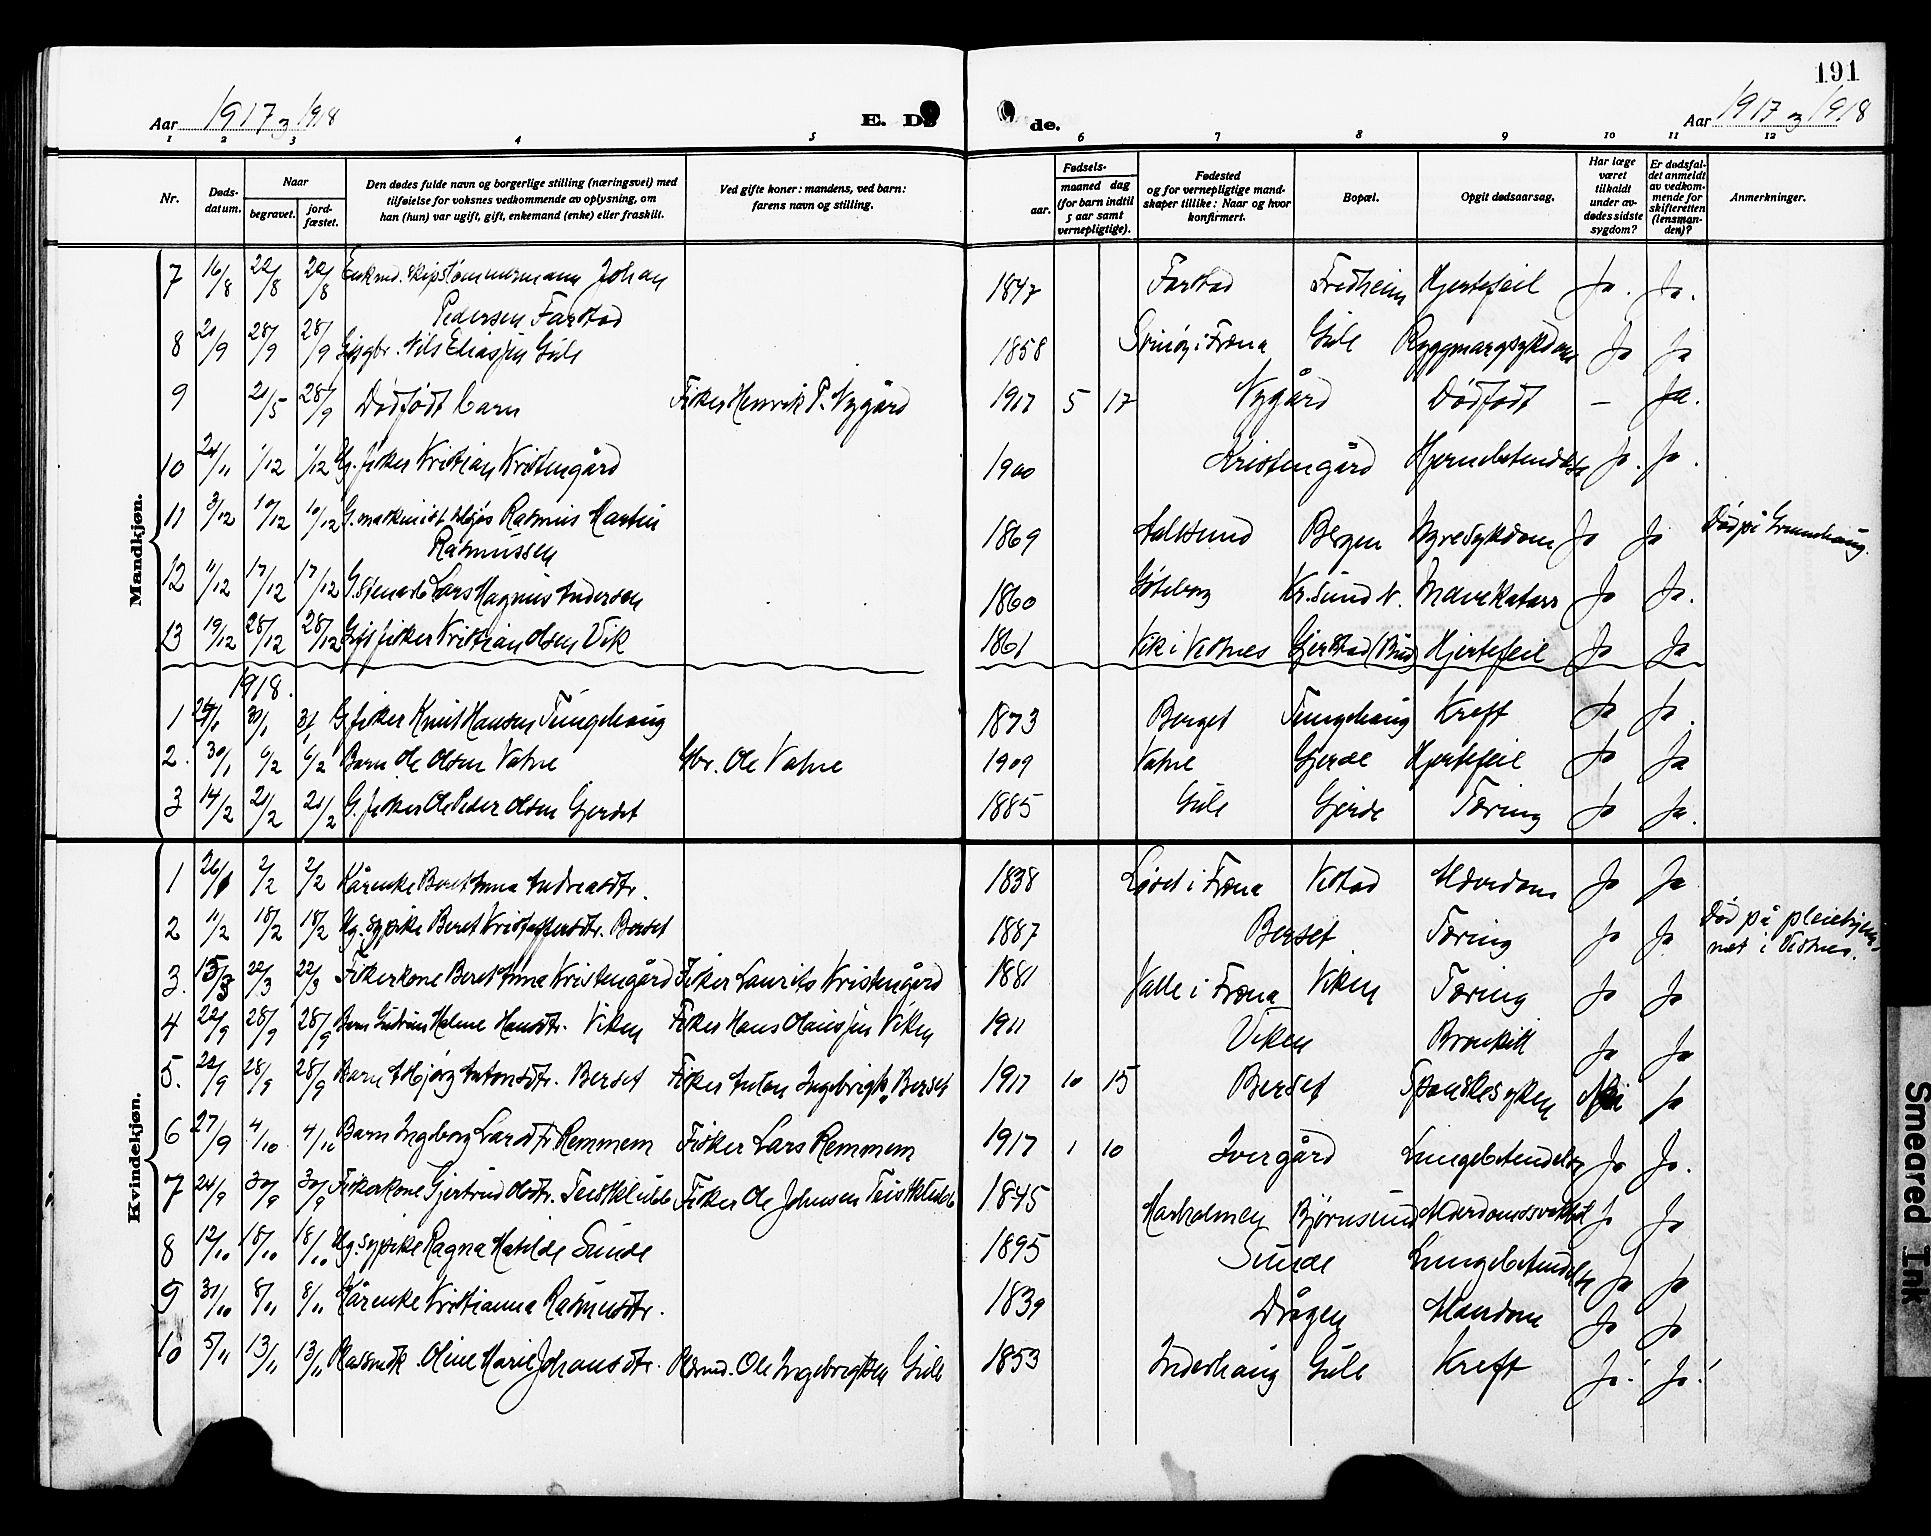 191
Aar 1917 og 1918
E. Dø
de.
Aar 1917 og 1918
1 2 3 4 5 6 7 8 9 10 11 12
Nr.
Døds-
datum.
Naar
begravet.
jord-
fæstet.
Den dødes fulde navn og borgerlige stilling (næringsvei) med
tilføielse for voksnes vedkommende av oplysning, om
han (hun) var ugift, gift, enkemand (enke) eller fraskilt.
Ved gifte koner: mandens, ved barn:
farens navn og stilling.
Fødsels-
aar.
maaned dag
(for barn indtil
5 aar samt
vernepligtige).
Fødested
og for vernepligtige mand-
skaper tillike: Naar og hvor
konfirmert.
Bopæl.
Opgit dødsaarsag.
Har læge
været
tilkaldt
under av-
dødes sidste
sygdom?
Er dødsfal-
det anmeldt
av vedkom-
mende for
skifteretten
(lensman-
den)?
Anmerkninger.
Mandkjøn.
7 16/8 22/8 22/8 Enkmd. skipstømmermann Johan
Pedersen Farstad 1847 Farstad Fredheim Hjertefeil Ja. Ja.
8 21/9 28/9 28/9 Nils Eliassen Gule 1858 i Fræna Gule Ryggmargsykdom Ja Ja
9 21/5 28/9 Dødfødt barn Fisker Henrik P. Nygård 1917 5 17 Nygård Dødfødt – Ja.
10 24/11 1/12 1/12 G. fisker Kristian Kristengård 1900 Kristengård Hjernebetendelse Ja. Ja.
11 3/12 10/12 10/12 G. maskinist Rasmus Martin
Rasmussen 1869 Aalesund Bergen Nyresykdom Ja Ja Død på
12 11/12 17/12 17/12 G. Lars Magnus Andersen 1860 Göteborg Kr.sund N. Mavekatarr Ja Ja.
13 19/12 28/12 28/12 Gift fisker Kristian Olsen Vik 1861 Vik i Vestnes Gjerstad (Bud) Hjertefeil Ja Ja
1918.
1 31/1 G. fisker Knut Hansen Tunghaug 1873 Berget Tunghaug Kreft Ja Ja.
2. 30/1 6/2 6/2 Barn Ole Olsen Vatne Gbr. Ole Vatne 1909 Vatne Gjerde Hjertefeil Ja Ja
3 14/2 21/2 21/2 G. fisker Ole Peder Olsen Gjerdet 1885 Gule Gjerde Tæring Ja Ja.
Kvindekjøn.
1 26/1 2/2 2/2 Kårenke Beret Anna Andreasdtr. 1838 i Fræna Vestad Alderdom Ja Ja
2 11/2 18/2 18/2 Ug. sypike Beret Kristoffersdtr. Berset 1887 Berset Tæring Ja Ja. Død på pleiehjem-
met i Vestnes.
3. 15/3 22/3 22/3 Fiskerkone Beret Anna Kristengård Fisker Laurits Kristengård 1881 Valle i Fræna Viken Tæring Ja Ja
4 22/9 28/9 28/9 Barn Gudrun Malene Hansdtr. Viken Fisker Hans Olaussen Viken 1911 Viken Bronkitt Ja Ja
5. 22/9 28/9 28/9 Barn Asbjørg Antonsdtr. Berset Fisker Anton Ingebrigts. Berset 1917 10 15 Berset Spanskesyken Nei Ja
6 27/9 4/10 4/10 Barn Ingeborg Larsdtr Remmem Fisker Lars Remmem 1917 1 10 Ivergård Lungebetendelse Ja Ja.
7 24/9 30/9 30/9 Fiskerkone Gjertrud Olsdtr. Teistklubb Fisker Ole Johnsen Teistklubb 1845 Harholmen Bjørnsund Alderdomssvakhet Ja Ja
8 12/10 18/10 18/10 Ug. sypike Ragna Matilde Sunde 1895 Sunde Lungebetendelse Ja Ja
9 31/10 8/11 8/11 Kårenke Kristianna Rasmusdtr. 1839 Drågen Alderdom Ja Ja
10 5/11 13/11 13/11 Oline Marie Johansdtr. Ole Ingebrigtsen Gule 1853 Inderhaug Gule Kreft Ja. Ja.
Smeared Ink